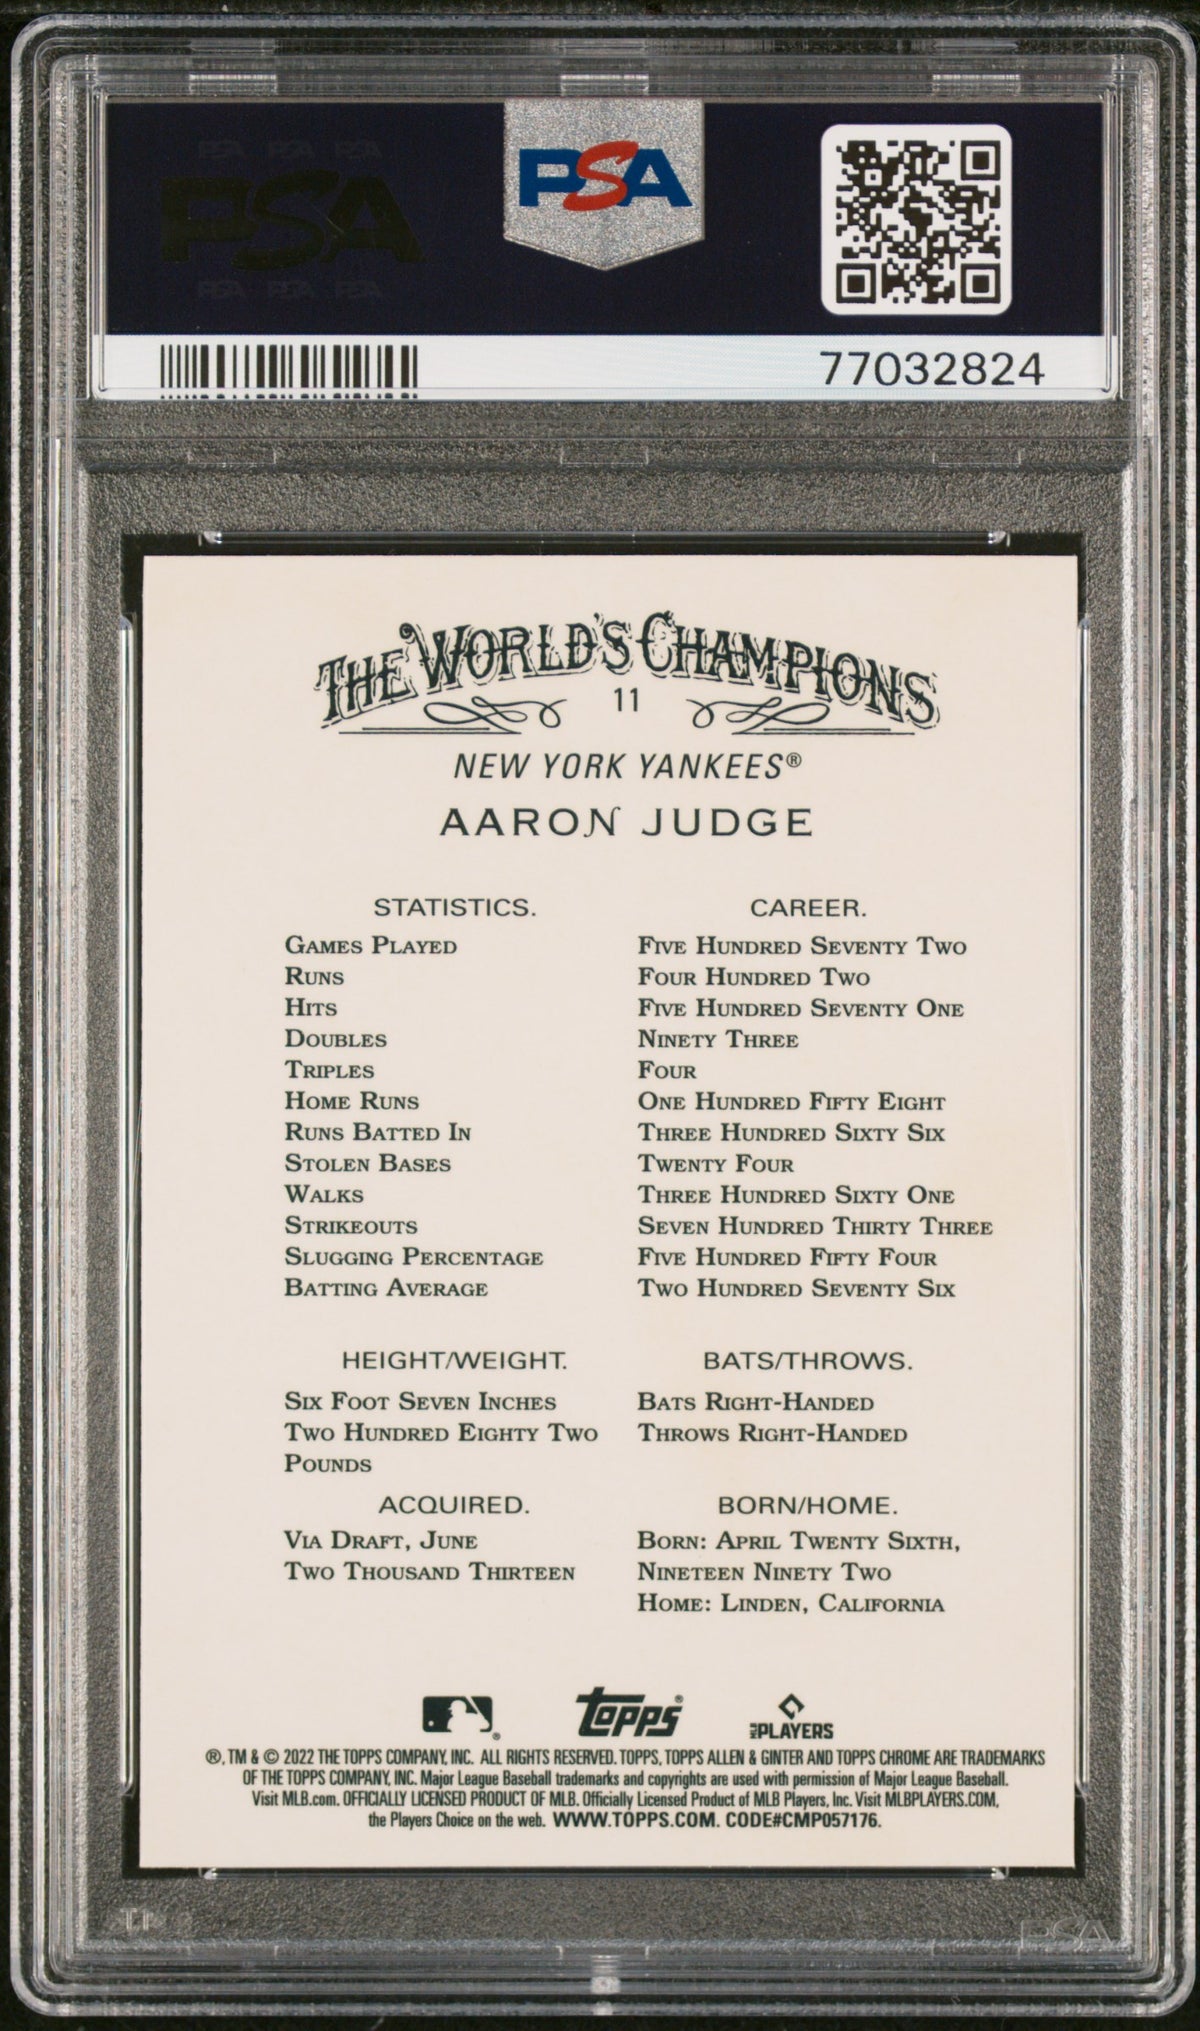 PSA PSA PSA
PSA
PSA PSA PSA
PSA
77032824
THE WORLD'S CHAMPIONS
11
NEW YORK YANKEES®
AARON JUDGE
STATISTICS. CAREER.
GAMES PLAYED FIVE HUNDRED SEVENTY TWO
RUNS FOUR HUNDRED TWO
HITS FIVE HUNDRED SEVENTY ONE
DOUBLES NINETY THREE
TRIPLES FOUR
HOME RUNS ONE HUNDRED FIFTY EIGHT
RUNS BATTED IN THREE HUNDRED SIXTY SIX
STOLEN BASES TWENTY FOUR
WALKS THREE HUNDRED SIXTY ONE
STRIKEOUTS SEVEN HUNDRED THIRTY THREE
SLUGGING PERCENTAGE FIVE HUNDRED FIFTY FOUR
BATTING AVERAGE TWO HUNDRED SEVENTY SIX
HEIGHT/WEIGHT. BATS/THROWS.
SIX FOOT SEVEN INCHES BATS RIGHT-HANDED
TWO HUNDRED EIGHTY TWO THROWS RIGHT-HANDED
POUNDS
ACQUIRED. BORN/HOME.
VIA DRAFT, JUNE BORN: APRIL TWENTY SIXTH,
TWO THOUSAND THIRTEEN NINETEEN NINETY TWO
HOME: LINDEN, CALIFORNIA
® topps® MLB PLAYERS
®, TM & © 2022 THE TOPPS COMPANY, INC. ALL RIGHTS RESERVED. TOPPS, TOPPS ALLEN & GINTER AND TOPPS CHROME ARE TRADEMARKS
OF THE TOPPS COMPANY, INC. Major League Baseball trademarks and copyrights are used with permission of Major League Baseball.
Visit MLB.com. OFFICIALLY LICENSED PRODUCT OF MLB. Officially Licensed Product of MLB Players, Inc. Visit MLBPLAYERS.COM,
the Players Choice on the web. WWW.TOPPS.COM. CODE#CMP057176.
PSA